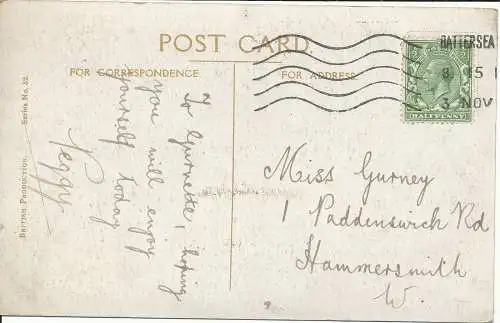 POST CARD.
FOR CORRESPONDENCE
FOR ADDRESS
BATTERSEA
8.15
3 NOV
HALFPENNY
To Gurnette, hoping
you will enjoy
yourself today
Peggy
Miss Gurney
1 Paddenswick Rd
Hammersmith
W.
BRITISH PRODUCTION. Series No. 52.